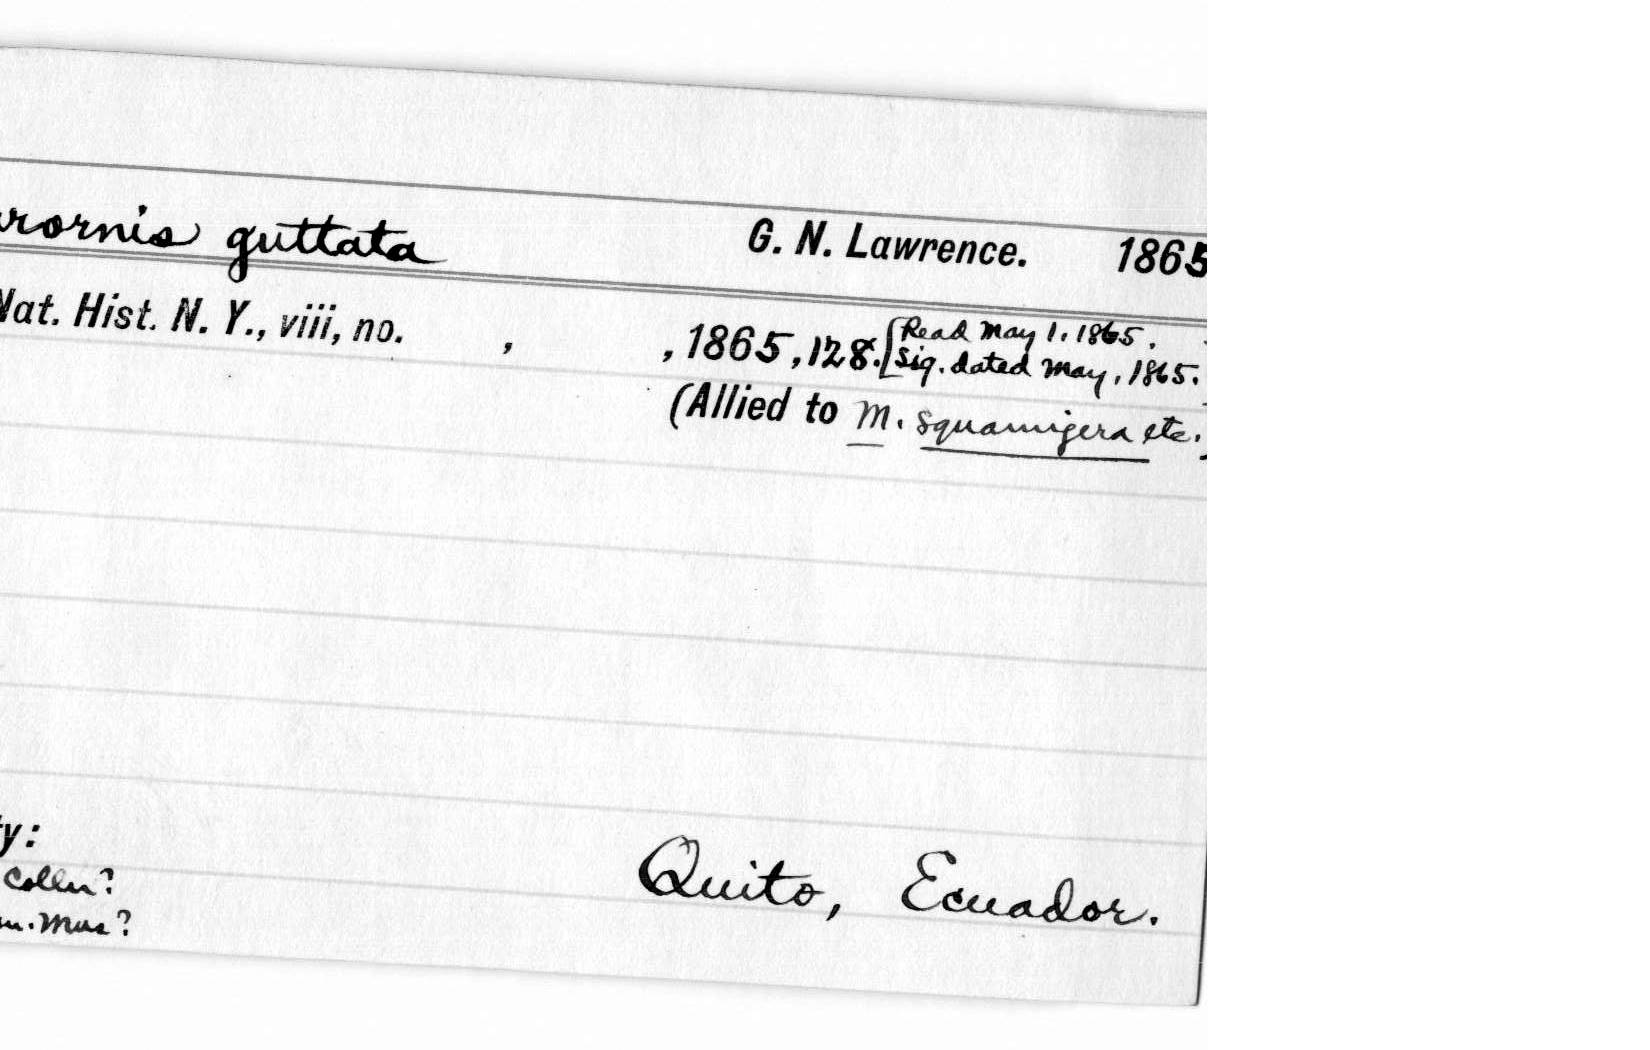 rornis guttata G. N. Lawrence. 1865
Nat. Hist. N. Y., viii, no. , , 1865, 128. [Read May 1, 1865.
Sig. dated May, 1865.
(Allied to M. squamigera etc.)
ty:
Colln?
m. Mus?
Quito, Ecuador.